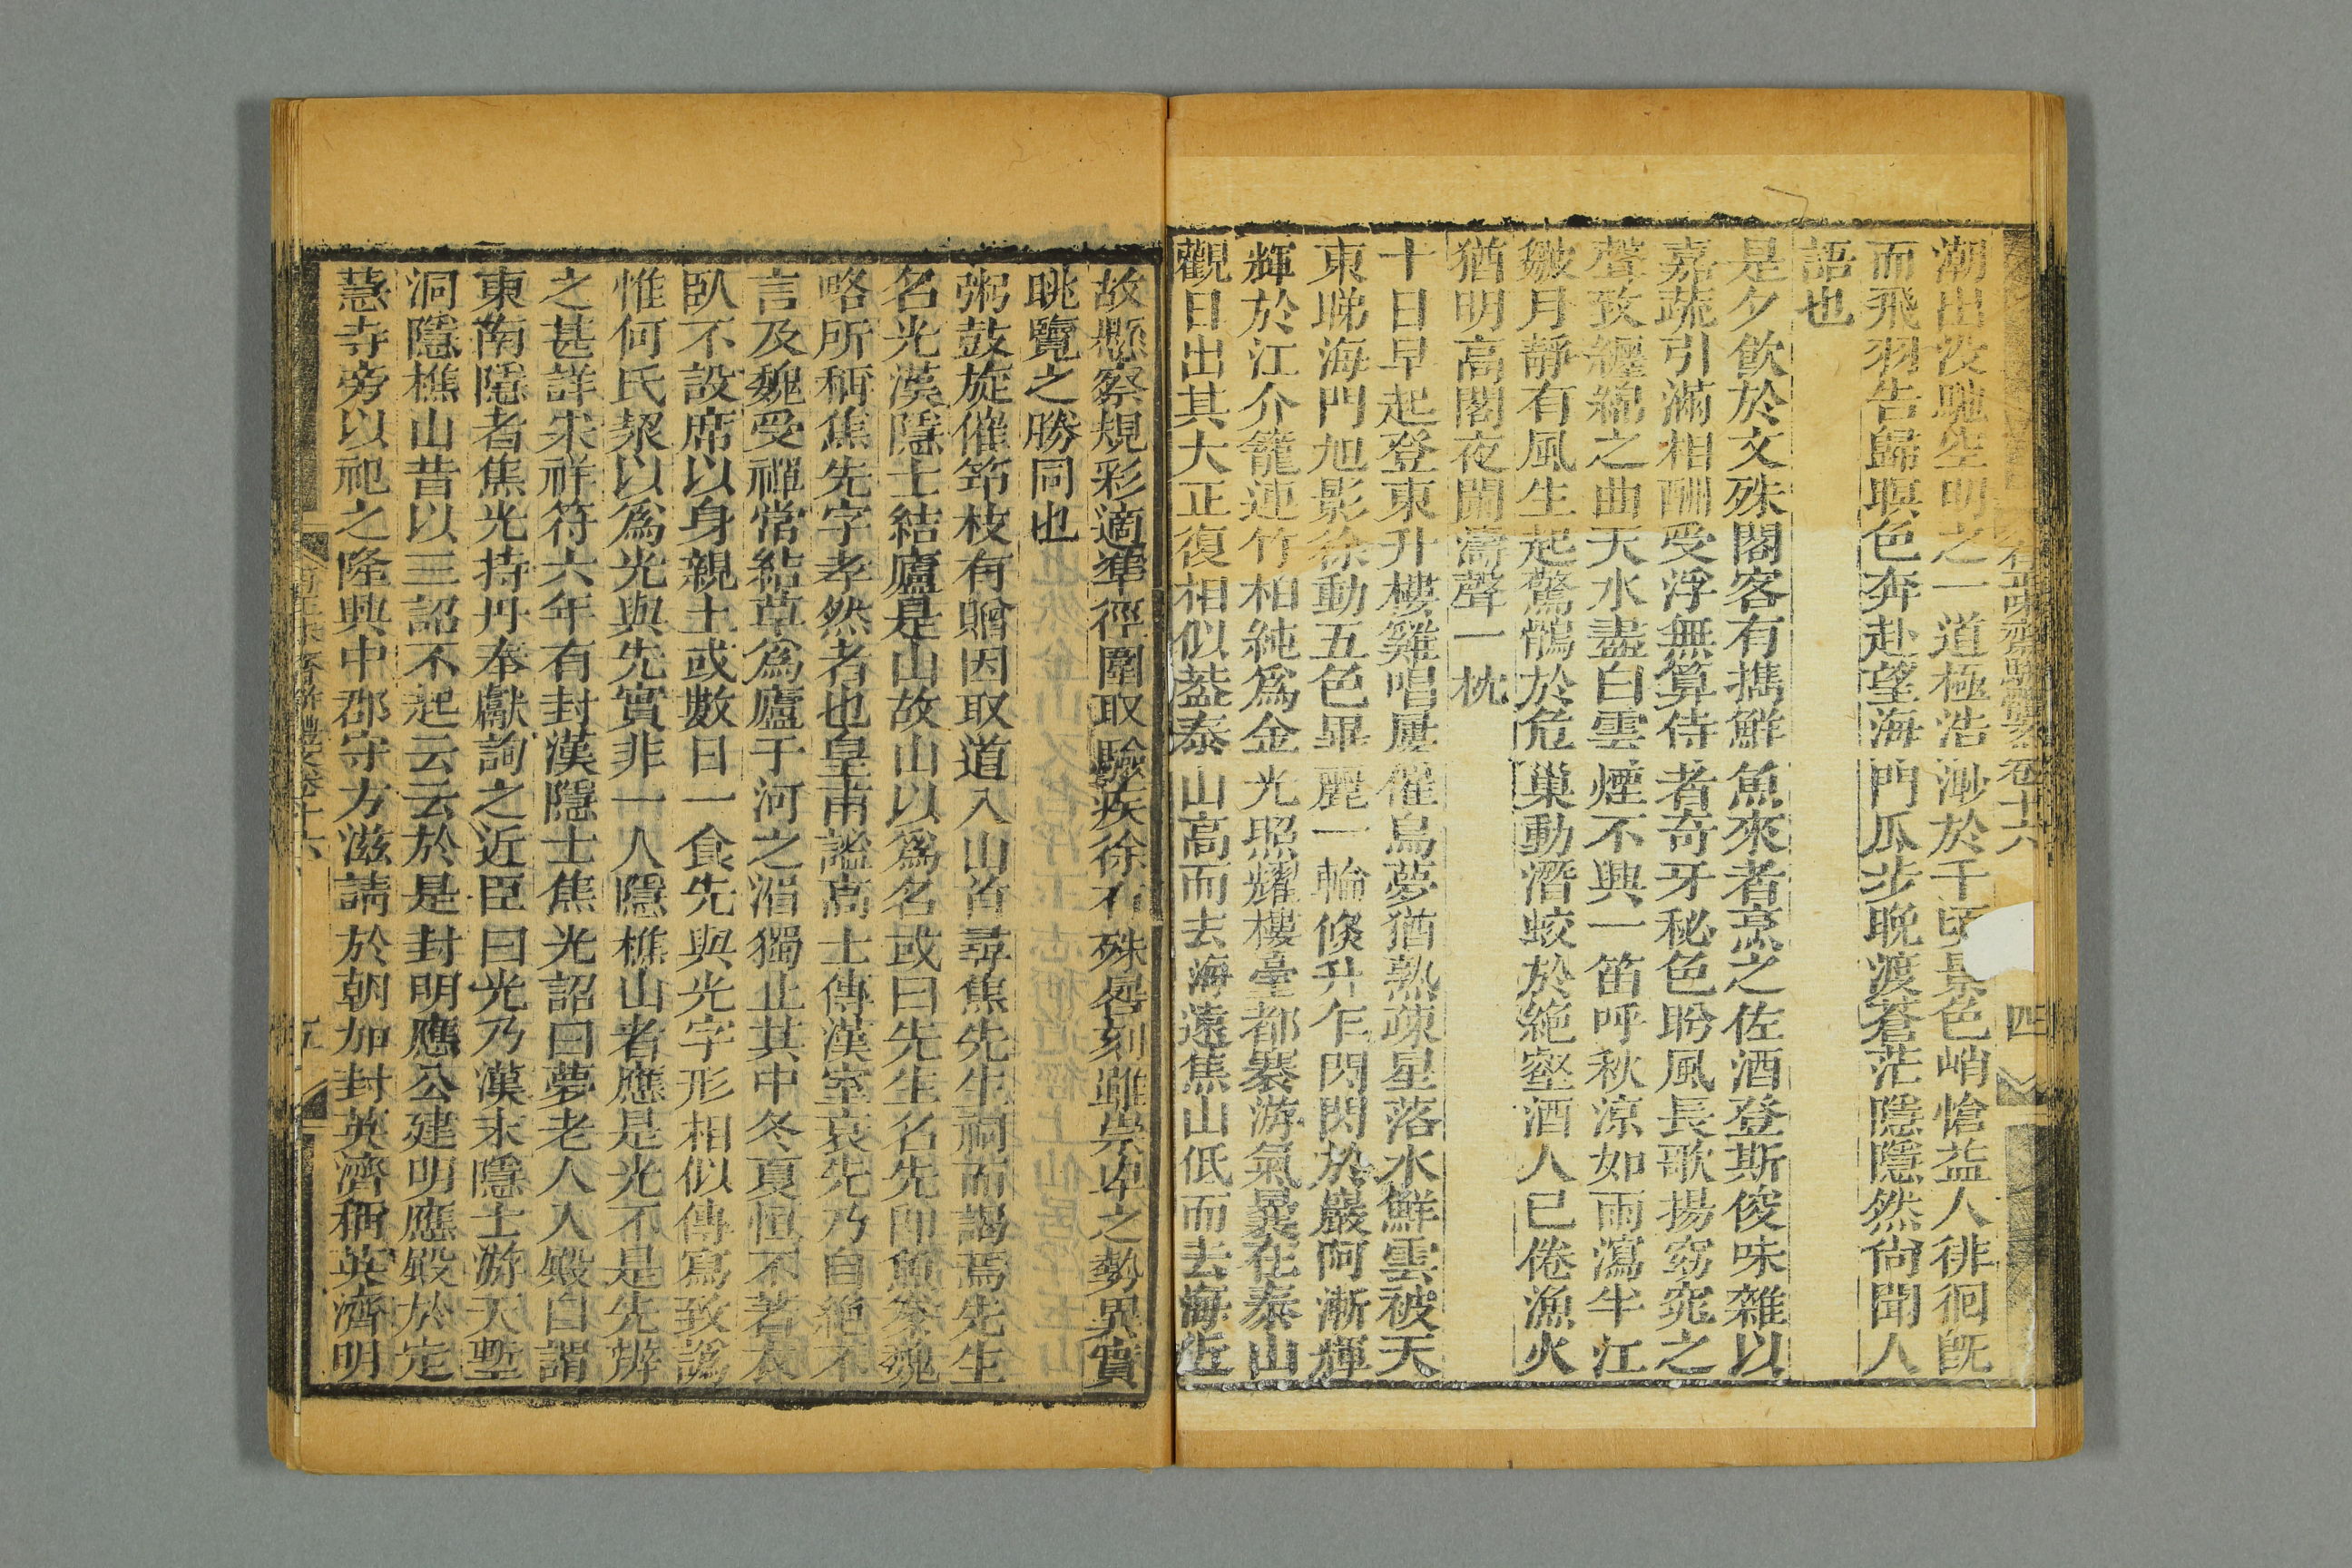 潮出沒馳空明之一道極浩渺於千頃景色峭愴益人徘徊既
而飛羽告歸暝色奔赴望海門瓜步晚渡蒼茫隱隱然尙聞人
語也
是夕飲於文殊閣客有擕鮮魚來者烹之佐酒登斯俊味雜以
嘉蔬引滿相酬受浮無算侍者奇牙秘色盼風長歌揚窈窕之
聲致纏綿之曲天水盡白雲煙不興一笛呼秋涼如雨瀉半江
皴月靜有風生起驚鶻於危巢動潛蛟於絶壑酒人已倦漁火
猶明高閣夜開濤聲一枕
十日早起登東升樓雞唱屢催烏夢猶熟疎星落水鮮雲被天
東睇海門旭影徐動五色畢麗一輪倐升乍閃閃於巖阿漸輝
輝於江介籠連竹柏純爲金光照耀樓臺都褰游氣曩在泰山
觀日出其大正復相似葢泰山高而去海遠焦山低而去海近
故懸察規彩適準徑圍取驗疾徐不殊晷刻雖崇卑之勢異實
眺覽之勝同也
粥鼓旋催筇枝有贈因取道入山首尋焦先生祠而謁焉先生
名光漢隱士結廬是山故山以爲名或曰先生名先卽魚豢魏
略所稱焦先字孝然者也皇甫謐高士傳漢室衰先乃自絶不
言及魏受禪常結草爲廬于河之湄獨止其中冬夏恒不著衣
臥不設席以身親土或數日一食先與光字形相似傳寫致譌
惟何氏栔以爲光與先實非一人隱樵山者應是光不是先辨
之甚詳宋祥符六年有封漢隱士焦光詔曰夢老人入殿自謂
東南隱者焦光持丹奉獻詢之近臣曰光乃漢末隱士游天塹
洞隱樵山昔以三詔不起云云於是封明應公建明應殿於定
慧寺旁以祀之隆興中郡守方滋請於朝加封英濟稱英濟明